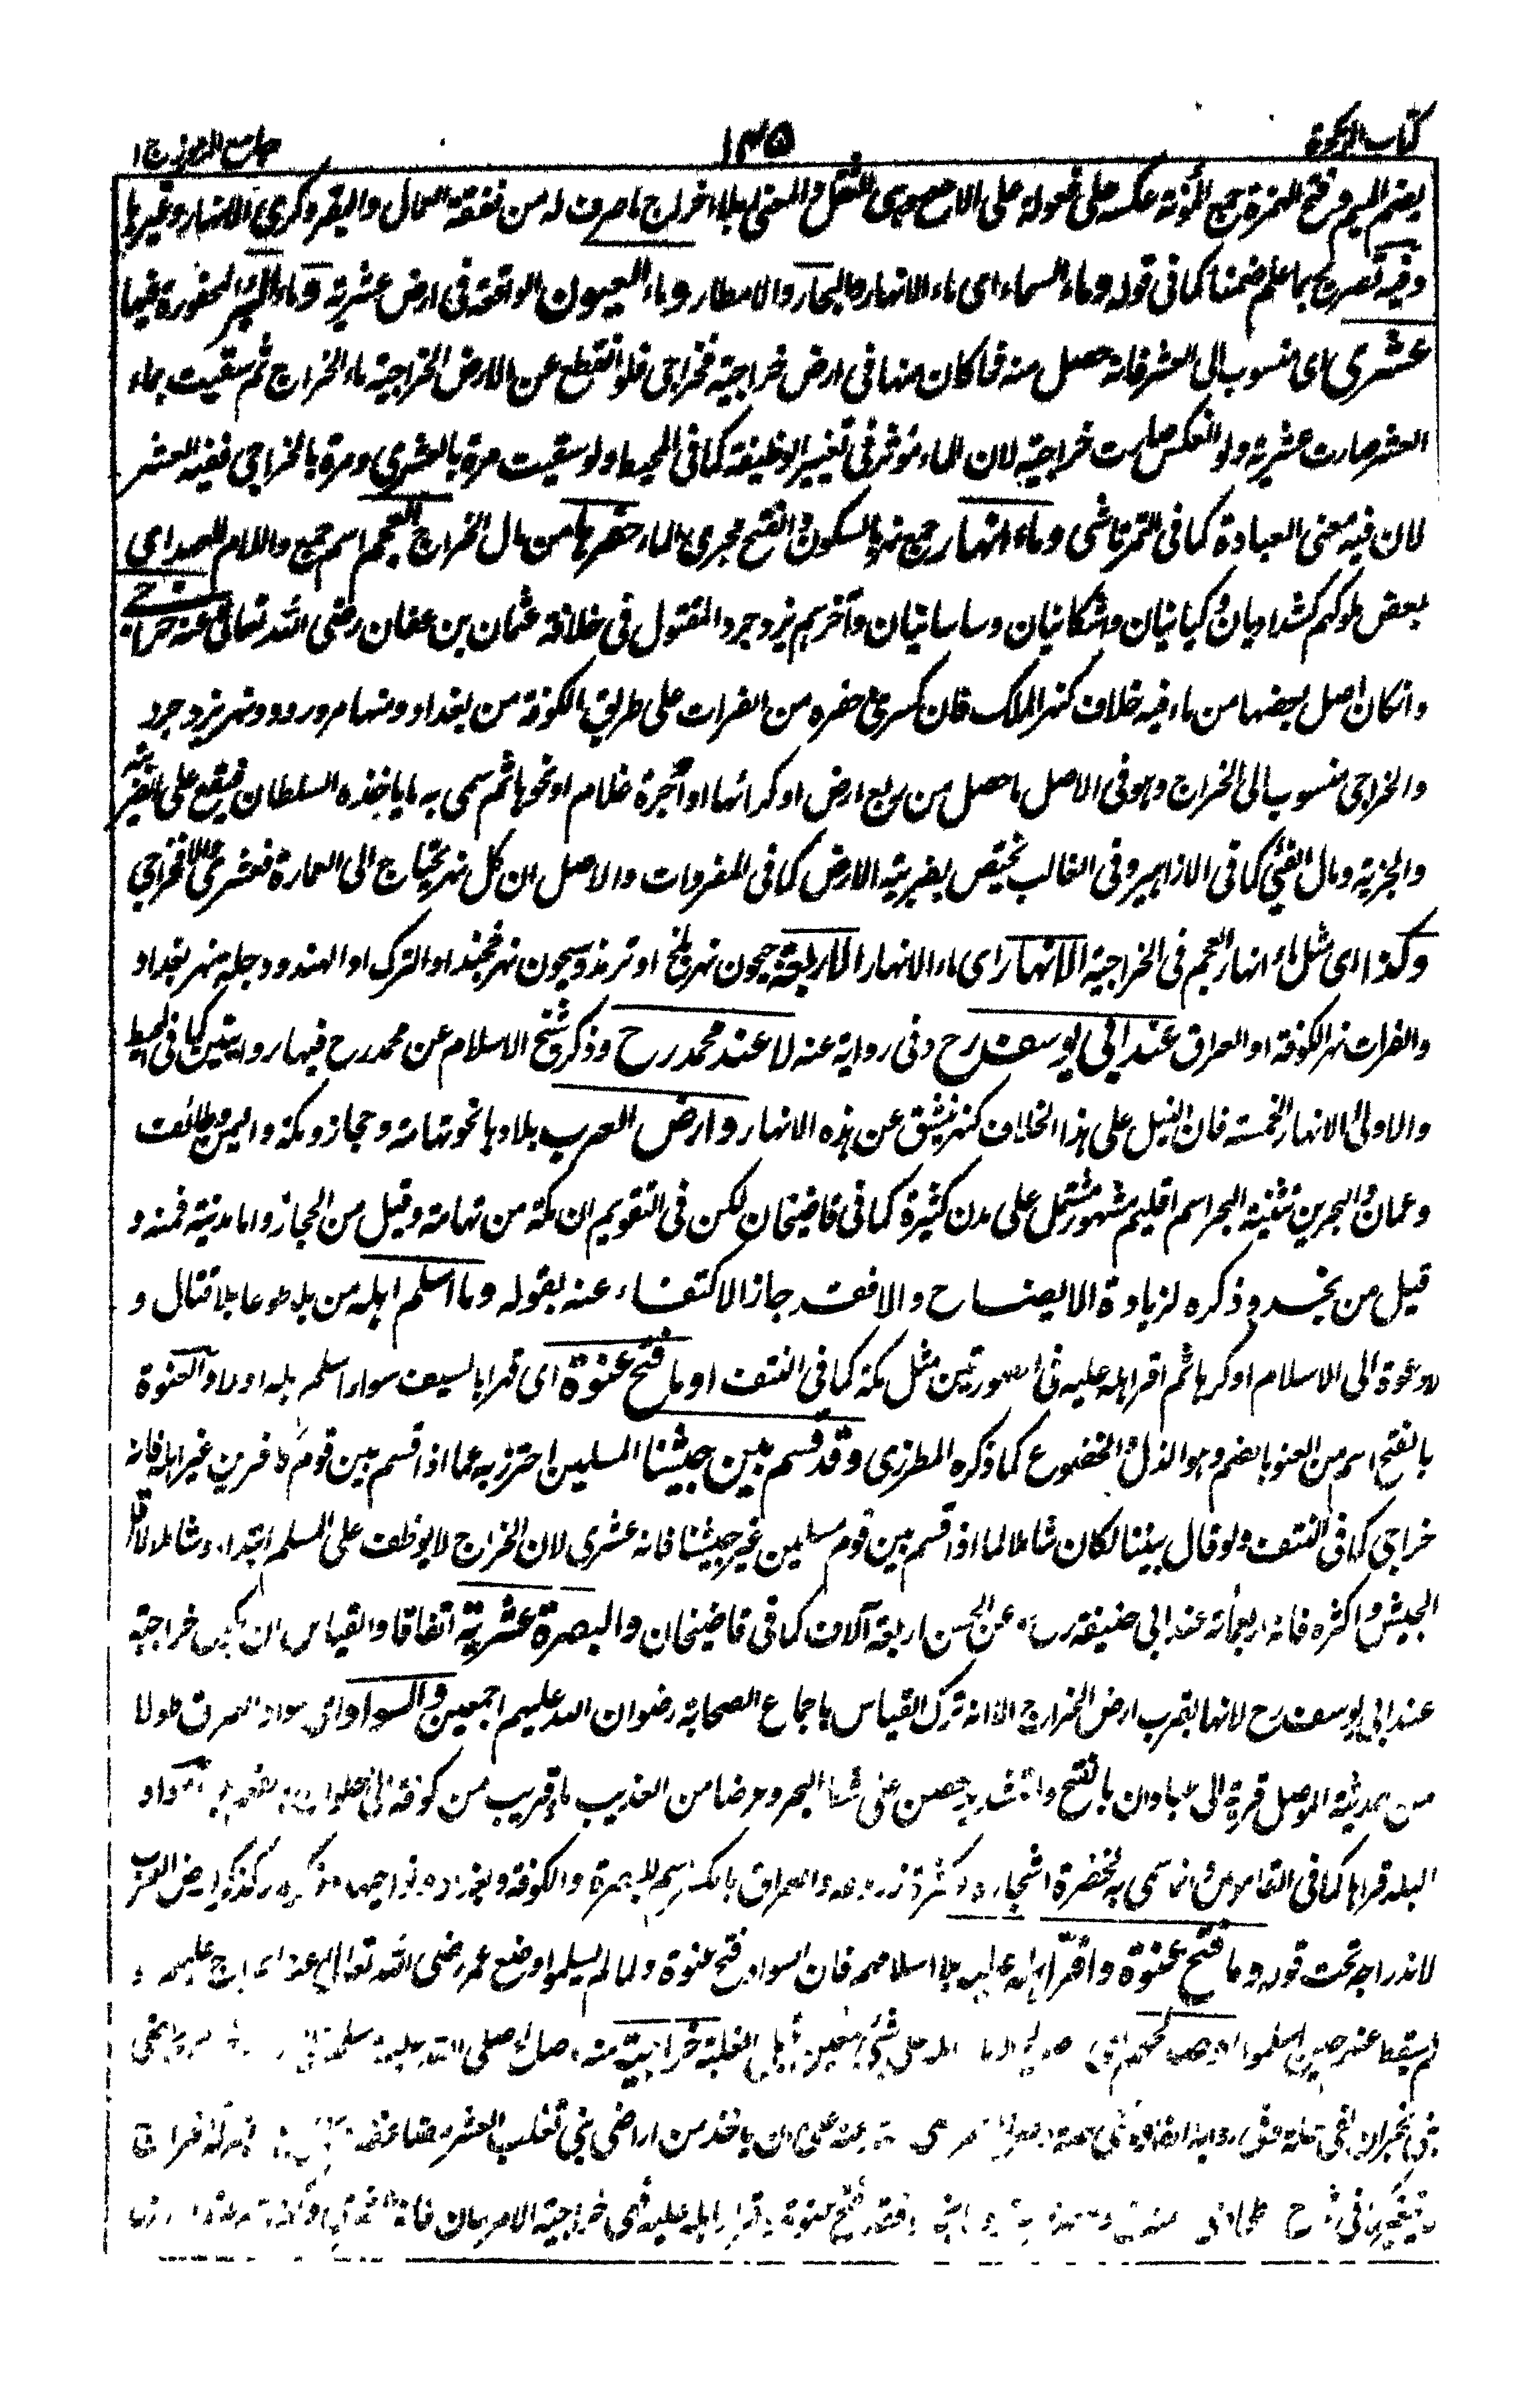 كتاب الزكوة
١٣٥
جامع الرموز ج١
بضم الميم وفتح الهمزة جمع المؤنة عكسه على فعولة على الاصح وهي الثقل والمعنى بلا اخراج ما صرف له من نفقة العمال والبقر وكري الانهار وغيرها
وفيه تصريح بما علم ضمنا كما في قوله وماء السماء اي ماء الانهار والبحار والامطار وماء العيون الواقعة في ارض عشرية وماء البئر المحفورة فيها
عشري اي منسوب الى العشر فانه حصل منه فما كان منها في ارض خراجية فخراجي فلو انقطع عن الارض الخراجية ماء الخراج ثم سقيت بماء
العشر صارت عشرية ولو انعكس صارت خراجية لان الماء مؤثر في تغيير الوظيفة كما في المحيط ولو سقيت مرة بالعشري ومرة بالخراجي ففيه العشر
لان فيه معنى العبادة كما في التمرتاشي وماء انهار جمع نهر بالسكون والفتح مجرى الماء حفرها من مال الخراج العجم اسم جمع واللام للعهد اي
بعض ملوكهم كشداديان وكيانيان واشكانيان وساسانيان وآخرهم يزدجرد المقتول في خلافة عثمان بن عفان رضى الله تعالى عنه خراجي
وانكان اصل بعضها من ماء فيه خلاف كنهر الملك فان كسرى حفره من الفرات على طريق الكوفة من بغداد ومنها مرورود ونهر يزدجرد
والخراجي منسوب الى الخراج وهو في الاصل ما حصل من ريع ارض او كرائها او اجرة غلام او نحوها ثم سمي به ما ياخذه السلطان فيقع على الضريبة
والجزية ومال الفيء كما في الازاهير وفي الغالب يختص بضريبة الارض كما في المفردات والاصل ان كل نهر يحتاج الى العمارة فعشري والا فخراجي
وكذا اي مثل ماء انهار العجم في الخراجية الانهار اي ماء الانهار الاربعة جيحون نهر بلخ او ترمذ وسيحون نهر خجند او الترك او الهند ودجلة نهر بغداد
والفرات نهر الكوفة او العراق عند ابي يوسف رح وفي رواية عنه لا عند محمد رح وذكر شيخ الاسلام عن محمد رح فيها روايتين كما في المحيط
والاولى الانهار الخمسة فان النيل على هذا الخلاف كنهر ينشق عن هذه الانهار وارض العرب بلادها نحو تهامة وحجاز ومكة واليمن وطائف
وعمان والبحرين تثنية البحر اسم اقليم مشهور مشتمل على مدن كثيرة كما في قاضيخان لكن في التقويم ان مكة من تهامة وقيل من الحجاز واما مدينة فمنه و
قيل من نجد وذكره لزيادة الايضاح والا فقد جاز الاكتفاء عنه بقوله وما اسلم اهله من بلد طوعا بلا قتال و
دعوة الى الاسلام او كرها ثم اقر اهله عليه في الصورتين مثل مكة كما في النتف او ما فتح عنوة اي قهرا بالسيف سواء اسلم اهله اولا والعنوة
بالفتح اسم من العنو بالضم وهو الذل والخضوع كما ذكره المطرزي وقد قسم بين جيشنا المسلمين احترز به عما اذا قسم بين قوم كافرين غير اهله فانه
خراجي كما في النتف ولو قال بيننا لكان شاملا لما اذا قسم بين قوم مسلمين غير جيشنا فانه عشري لان الخراج لا يوظف على المسلم ابتداء وشاملا لاقل
الجيش واكثره فانه اربعمائة عند ابي حنيفة رح وعن الحسن اربعة آلاف كما في قاضيخان والبصرة عشرية اتفاقا والقياس ان يكون خراجية
عند ابي يوسف رح لانها بقرب ارض الخراج الا انه ترك القياس باجماع الصحابة رضوان الله عليهم اجمعين والسواد اي سواد العراق طولا
من حديثة الموصل قرية الى عبادان بالفتح والتشديد حصن على شط البحر وعرضا من العذيب ماء قريب من كوفة الى حلوان
البلد قراها كما في القاموس وانما سمي به لخضرة اشجاره وكثرة زروعه والعراق بالكسر اسم للبصرة والكوفة وبغداد ونواحيها
لاندراجه تحت قوله وما فتح عنوة واقر اهله عليه بلا اسلامهم فان السواد فتح عنوة ولما لم يسلموا وضع عمر رضى الله تعالى عنه الخراج عليهم و
لم يسقط عنهم حين اسلموا او صالحهم اي شيء معين خراجية صلى الله عليه وسلم
بني نجران ان ياخذ من اراضي بني تغلب العشر مضاعفة
في شرح فتح عنوة اهله عليه فهي خراجية